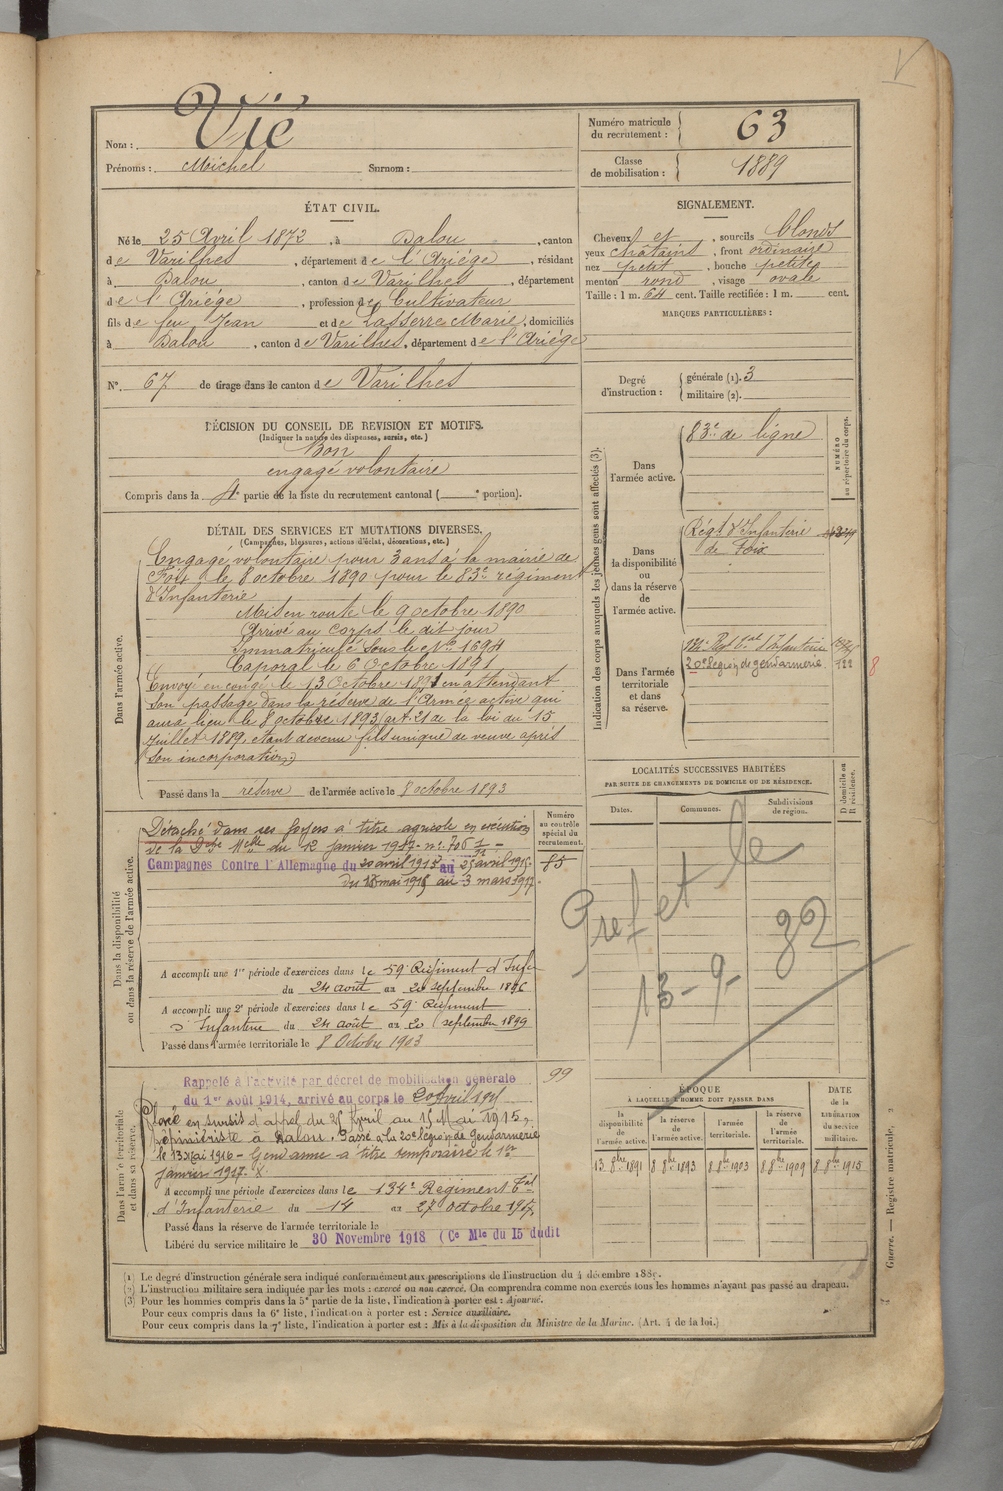 V
Vié
Nom :
Prénoms : Michel Surnom :
Numéro matricule
du recrutement : 63
Classe
de mobilisation : 1889
ÉTAT CIVIL.
Né le 25 Avril 1872, à Dalou, canton
de Varilhes, département de l'Ariège, résidant
à Dalou, canton de Varilhes, département
de l'Ariège, profession de Cultivateur
fils de feu Jean et de Lasserre Marie, domiciliés
à Dalou, canton de Varilhes, département de l'Ariége
N° 67 de tirage dans le canton de Varilhes
SIGNALEMENT.
Cheveux et, sourcils blonds
yeux châtains, front ordinaire
nez petit, bouche petite
menton rond, visage ovale
Taille : 1 m. 64 cent. Taille rectifiée : 1 m. cent.
MARQUES PARTICULIÈRES :
Degré
d'instruction :
générale (1). 3
militaire (2).
DÉCISION DU CONSEIL DE REVISION ET MOTIFS.
(Indiquer la nature des dispenses, sursis, etc.)
Bon
engagé volontaire
Compris dans la 4e partie de la liste du recrutement cantonal ( e portion).
DÉTAIL DES SERVICES ET MUTATIONS DIVERSES.
(Campagnes, blessures, actions d'éclat, décorations, etc.)
Dans l'armée active.
Engagé volontaire pour 3 ans à la mairie de
Foix le 8 octobre 1890 pour le 83e régiment
d'Infanterie
Mis en route le 9 octobre 1890
Arrivé au corps le dit jour
Immatriculé sous le No 1694
Caporal le 6 Octobre 1891
Envoyé en congé le 13 Octobre 1891 en attendant
son passage dans la réserve de l'Armée active qui
aura lieu le 8 octobre 1893 (art. 21 de la loi du 15
Juillet 1889, étant devenu fils unique de veuve après
son incorporation)
Passé dans la réserve de l'armée active le 8 octobre 1893
Indication des corps auxquels les jeunes gens sont affectés (3).
NUMÉRO
au répertoire du corps.
Dans
l'armée active.
83e de ligne
Dans
la disponibilité
ou
dans la réserve
de
l'armée active.
Régt d'Infanterie
de Foix
Dans l'armée
territoriale
et dans
sa réserve.
134e Regt tal d'Infanterie
20e Légion de gendarmerie 722
8
LOCALITÉS SUCCESSIVES HABITÉES
PAR SUITE DE CHANGEMENTS DE DOMICILE OU DE RÉSIDENCE.
Dates.
Communes.
Subdivisions
de région.
D domicile ou
R résidence.
Pref et le
13-9-32
Dans la disponibilité
ou dans la réserve de l'armée active.
Numéro
au contrôle
spécial du
recrutement.
85
Détaché dans ses foyers à titre agricole en exécution
de la Dche Melle du 12 janvier 1917 no 706
Campagnes Contre l'Allemagne du 20 avril 1915 au 25 avril 1915.
du 15 mai 1915 au 3 mars 1917.
A accompli une 1re période d'exercices dans le 59e Régiment d'Infie
du 24 août au 20 septembre 1896
A accompli une 2e période d'exercices dans le 59e Régiment
d'Infanterie du 24 août au 20 septembre 1899
Passé dans l'armée territoriale le 8 Octobre 1903
Dans l'armée territoriale
et dans sa réserve.
99
Rappelé à l'activité par décret de mobilisation générale
du 1er Août 1914, arrivé au corps le 20 Avril 1915
Placé en sursis d'appel du 25 Avril au 15 Mai 1915,
pépiniériste à Dalou. Passé à la 20e Légion de Gendarmerie
le 13 Mai 1916 - Gendarme à titre temporaire le 1er
janvier 1917.
A accompli une période d'exercices dans le 134e Régiment Tal
d'Infanterie du 14 au 27 octobre
Passé dans la réserve de l'armée territoriale le
Libéré du service militaire le 30 Novembre 1918 (Ce Mle du 15 dudit
ÉPOQUE
À LAQUELLE L'HOMME DOIT PASSER DANS
la
disponibilité
de
l'armée active.
la réserve
de
l'armée active.
l'armée
territoriale.
la réserve
de
l'armée
territoriale.
DATE
de la
LIBÉRATION
du service
militaire.
13 8bre 1891
8 8bre 1893
8 8bre 1903
8 8bre 1909
8 8bre 1915
Guerre. — Registre matricule,
(1) Le degré d'instruction générale sera indiqué conformément aux prescriptions de l'instruction du 4 décembre 1889.
(2) L'instruction militaire sera indiquée par les mots : exercé ou non exercé. On comprendra comme non exercés tous les hommes n'ayant pas passé au drapeau.
(3) Pour les hommes compris dans la 5e partie de la liste, l'indication à porter est : Ajourné.
Pour ceux compris dans la 6e liste, l'indication à porter est : Service auxiliaire.
Pour ceux compris dans la 7e liste, l'indication à porter est : Mis à la disposition du Ministre de la Marine. (Art. 4 de la loi.)